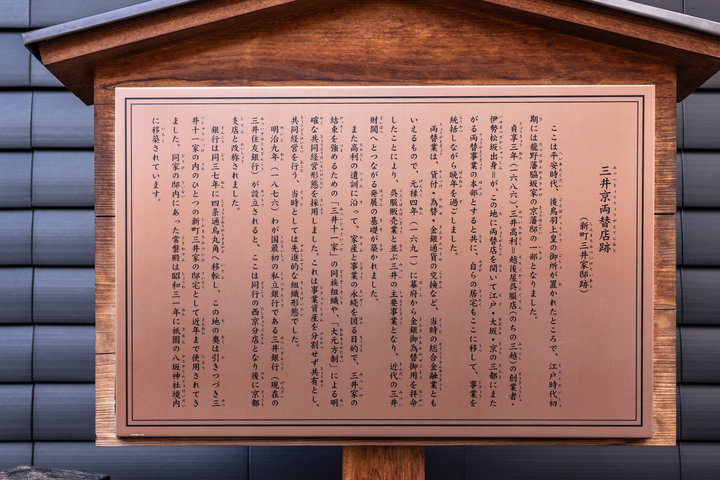 三井京両替店跡
（新町三井家邸跡）
ここは平安時代、後鳥羽上皇の御所が置かれたところで、江戸時代初
期には龍野藩脇坂家の京藩邸の一部となりました。
貞享三年（一六八六）、三井高利＝越後屋呉服店（のちの三越）の創業者・
伊勢松坂出身＝が、この地に両替店を開いて江戸・大坂・京の三都にまた
がる両替事業の本部とすると共に、自らの居宅もここに移して、事業を
統括しながら晩年を過ごしました。
両替業は、貸付・為替・金銀通貨の交換など、当時の総合金融業とも
いえるもので、元禄四年（一六九一）に幕府から金銀御為替御用を拝命
したことにより、呉服販売業と並ぶ三井の主要事業となり、近代の三井
財閥へとつながる発展の基礎が築かれました。
また高利の遺訓に沿って、家産と事業の永続を図る目的で、三井家の
結束を強めるための「三井十一家」の同族組織や、「大元方制」による明
確な共同経営形態を採用しました。これは事業資産を分割せず共有とし、
共同経営を行う、当時としては先進的な組織形態でした。
明治九年（一八七六）わが国最初の私立銀行である三井銀行（現在の
三井住友銀行）が設立されると、ここは同行の西京分店となり後に京都
支店と改称されました。
銀行は同三七年に四条通烏丸角へ移転し、この地の奥は引きつづき三
井十一家の内のひとつの新町三井家の邸宅として近年まで使用されてき
ました。同家の邸内にあった常磐殿は昭和三一年に祇園の八坂神社境内
に移築されています。